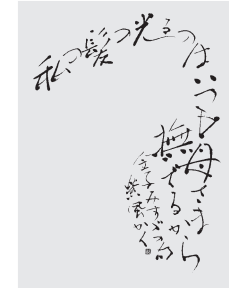 私の髪の光るのは
いつも母さま
撫でるから
金子みすゞの詩
紫風かく